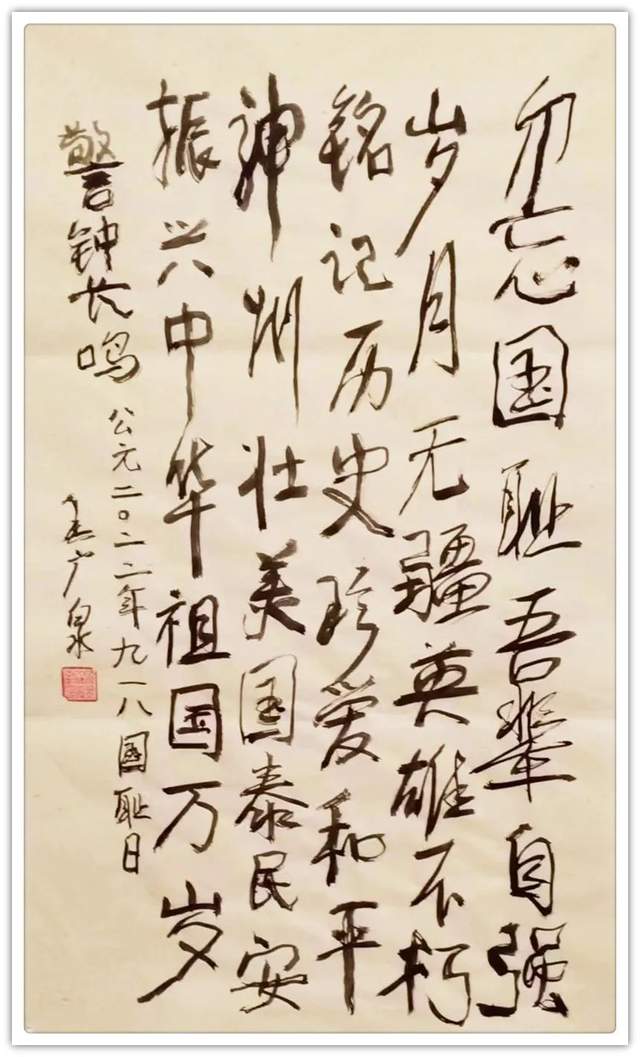 勿忘国耻吾辈自强
岁月无疆英雄不朽
铭记历史珍爱和平
神州壮美国泰民安
振兴中华祖国万岁
警钟长鸣
公元二〇二二年九一八国耻日
广泉